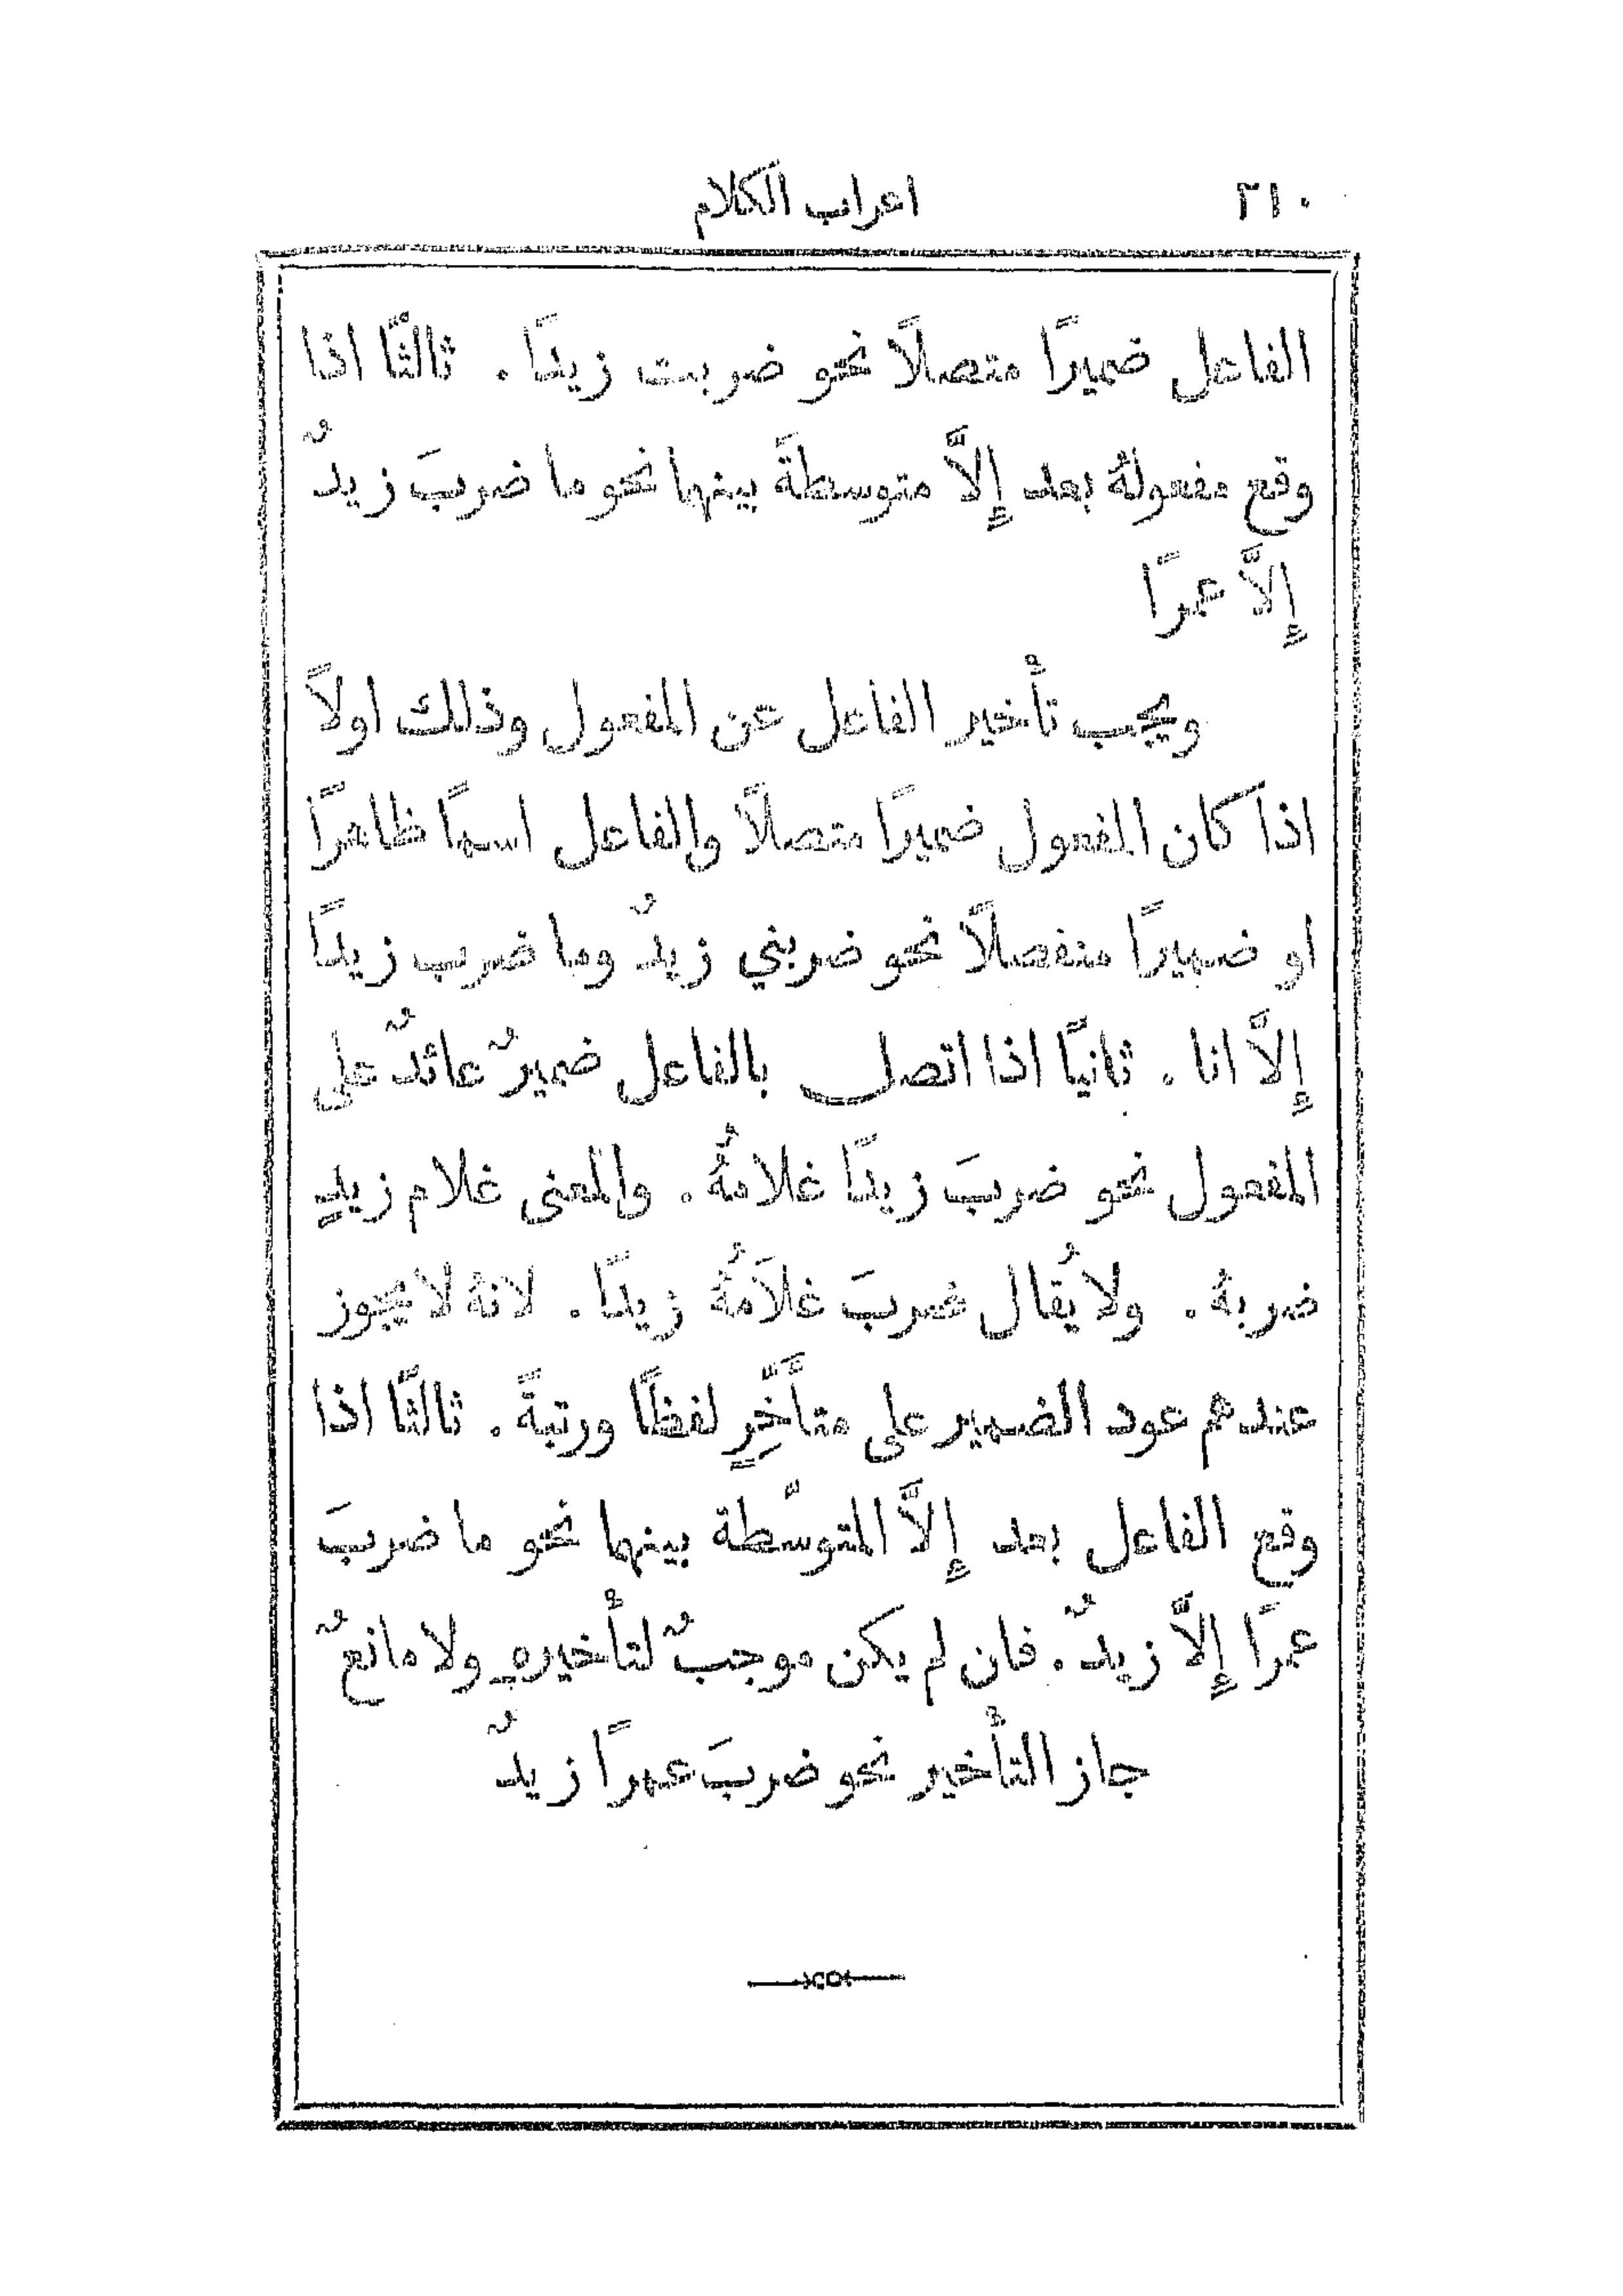 ٢١٠ اعراب الكلام
الفاعل ضميرًا متصلًا نحو ضربت زيدًا. ثالثًا اذا
وقع مفعولهُ بعد إلَّا متوسطةً بينهما نحو ما ضربَ زيدٌ
إلَّا عمرًا
ويجب تأْخير الفاعل عن المفعول وذلك اولًا
اذا كان المفعول ضميرًا متصلًا والفاعل اسمًا ظاهرًا
او ضميرًا منفصلًا نحو ضربني زيدٌ وما ضرب زيدًا
إلَّا انا. ثانيًا اذا اتصل بالفاعل ضميرٌ عائدٌ على
المفعول نحو ضربَ زيدًا غلامُهُ. والمعنى غلام زيدٍ
ضربهُ. ولا يُقال ضربَ غلَامُهُ زيدًا. لانهُ لا يجوز
عندهم عود الضمير على متأَخِّرٍ لفظًا ورتبةً. ثالثًا اذا
وقع الفاعل بعد إلَّا المتوسّطة بينهما نحو ما ضربَ
عمرًا إلَّا زيدٌ. فان لم يكن موجبٌ لتأْخيرهِ ولا مانعٌ
جاز التأْخير نحو ضربَ عمرًا زيدٌ